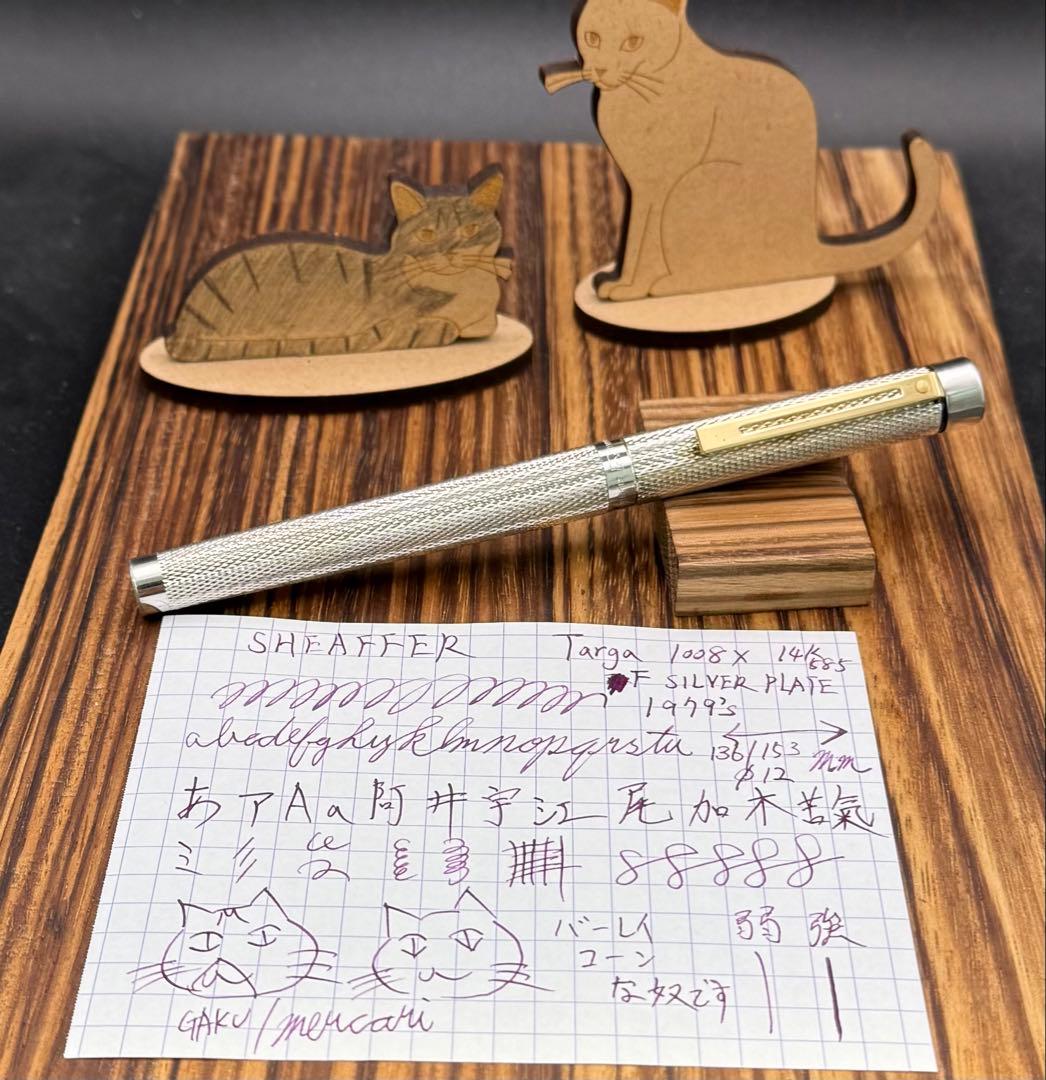 SHEAFFER Targa 1008X 14K 585
F SILVER PLATE
1979's
abcdefghijklmnopqrstu 136/153 mm
φ12
あ ア A a 阿 井 宇 江 尾 加 木 苦 氣
バーレイ 弱 強
コーン
な奴です
GAKU/mercari